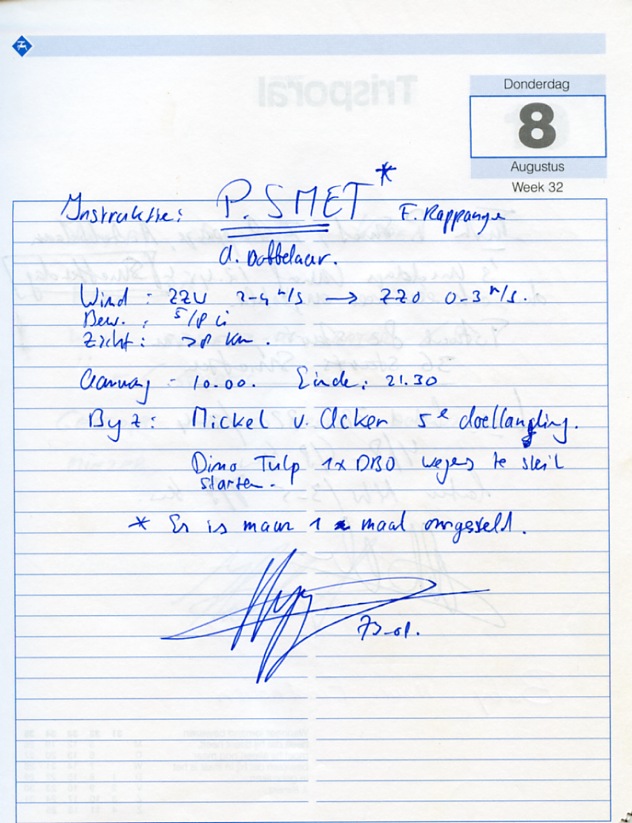 Donderdag
8
Augustus
Week 32
Instruktie: P. SMET * F. Rappange
A. Dobbelaar.
Wind : ZZW 2-4 m/s → ZZO 0-3 m/s.
Bew. : 5/8 Ci
Zicht : >8 km.
Aanvang - 10.00. Einde: 21.30
Byz: Mickel v. Acker 5e doellanding.
Dimo Tulp 1x DBO wegens te steil
starten.
* Er is maar 1 maal omgesteld.